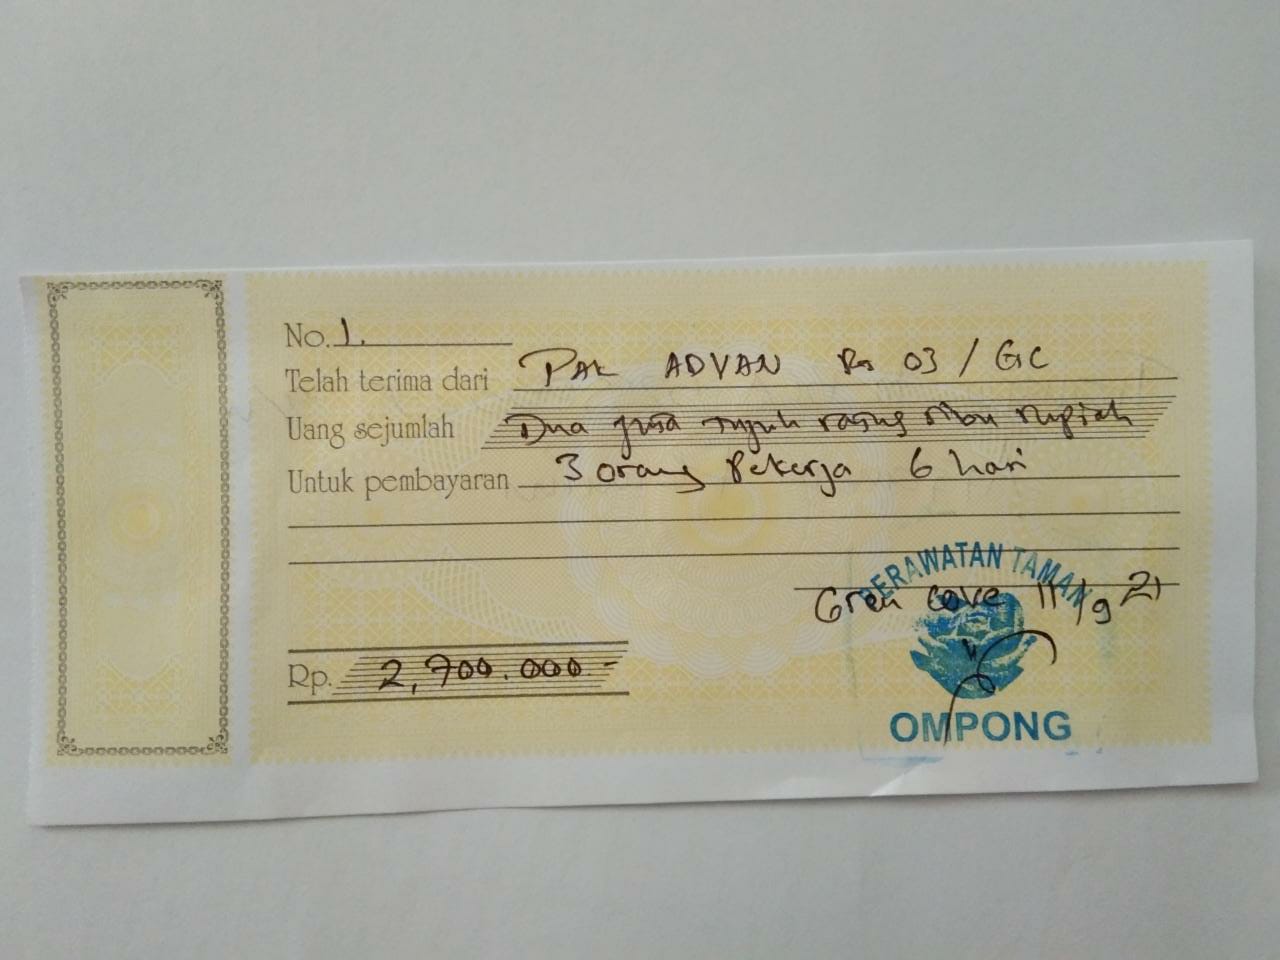 No. 1.
Telah terima dari PAK ADVAN 03 / GC
Uang sejumlah Dua juta tujuh ratus ribu rupiah
Untuk pembayaran 3 orang Pekerja 6 hari
PERAWATAN TAMAN
Gren cove 11/9 21
Rp. 2,700.000.-
OMPONG